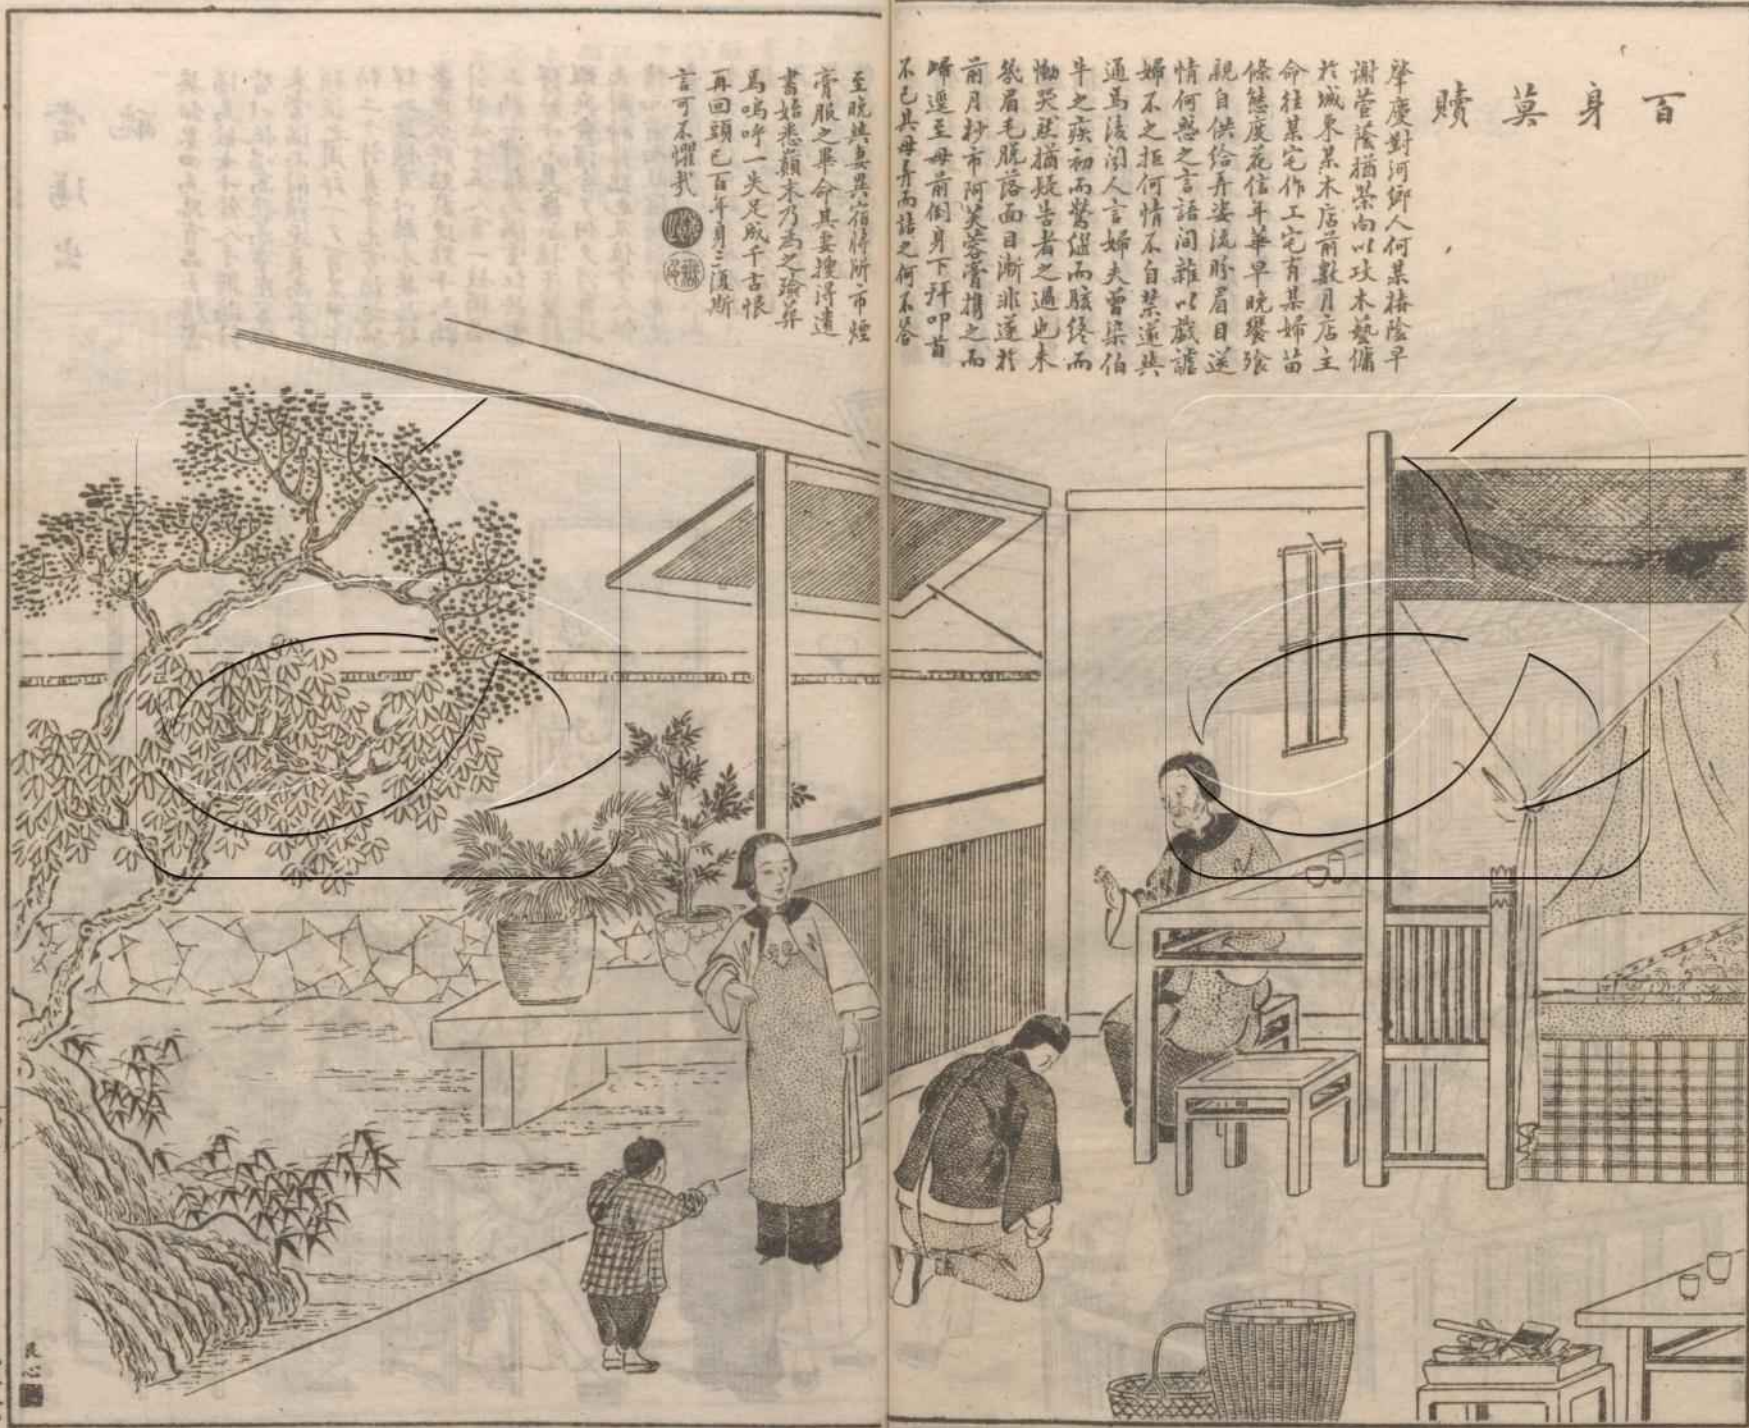 百身莫贖
肇慶對河鄉人何某椿蔭早
謝萱蔭猶榮向以攻木藝傭
於城東某木店前數月店主
命往某宅作工宅有某婦苗
條態度花信年華早晚饔飱
親自供給弄姿流盼眉目送
情何惑之言語間雜以戲謔
婦不之拒何情不自禁遂與
通焉後聞人言婦夫曾染伯
牛之疾初而驚繼而駭終而
慟哭然猶疑告者之過也未
幾眉毛脫落面目漸非遂於
前月杪市阿芙蓉膏攜之而
歸逕至母前倒身下拜叩首
不已其母異而詰之何不答
至晚與妻異宿將所市煙
膏服之畢命其妻搜得遺
書始悉巔末乃為之殮葬
焉嗚呼一失足成千古恨
再回頭已百年身三復斯
言可不懼哉